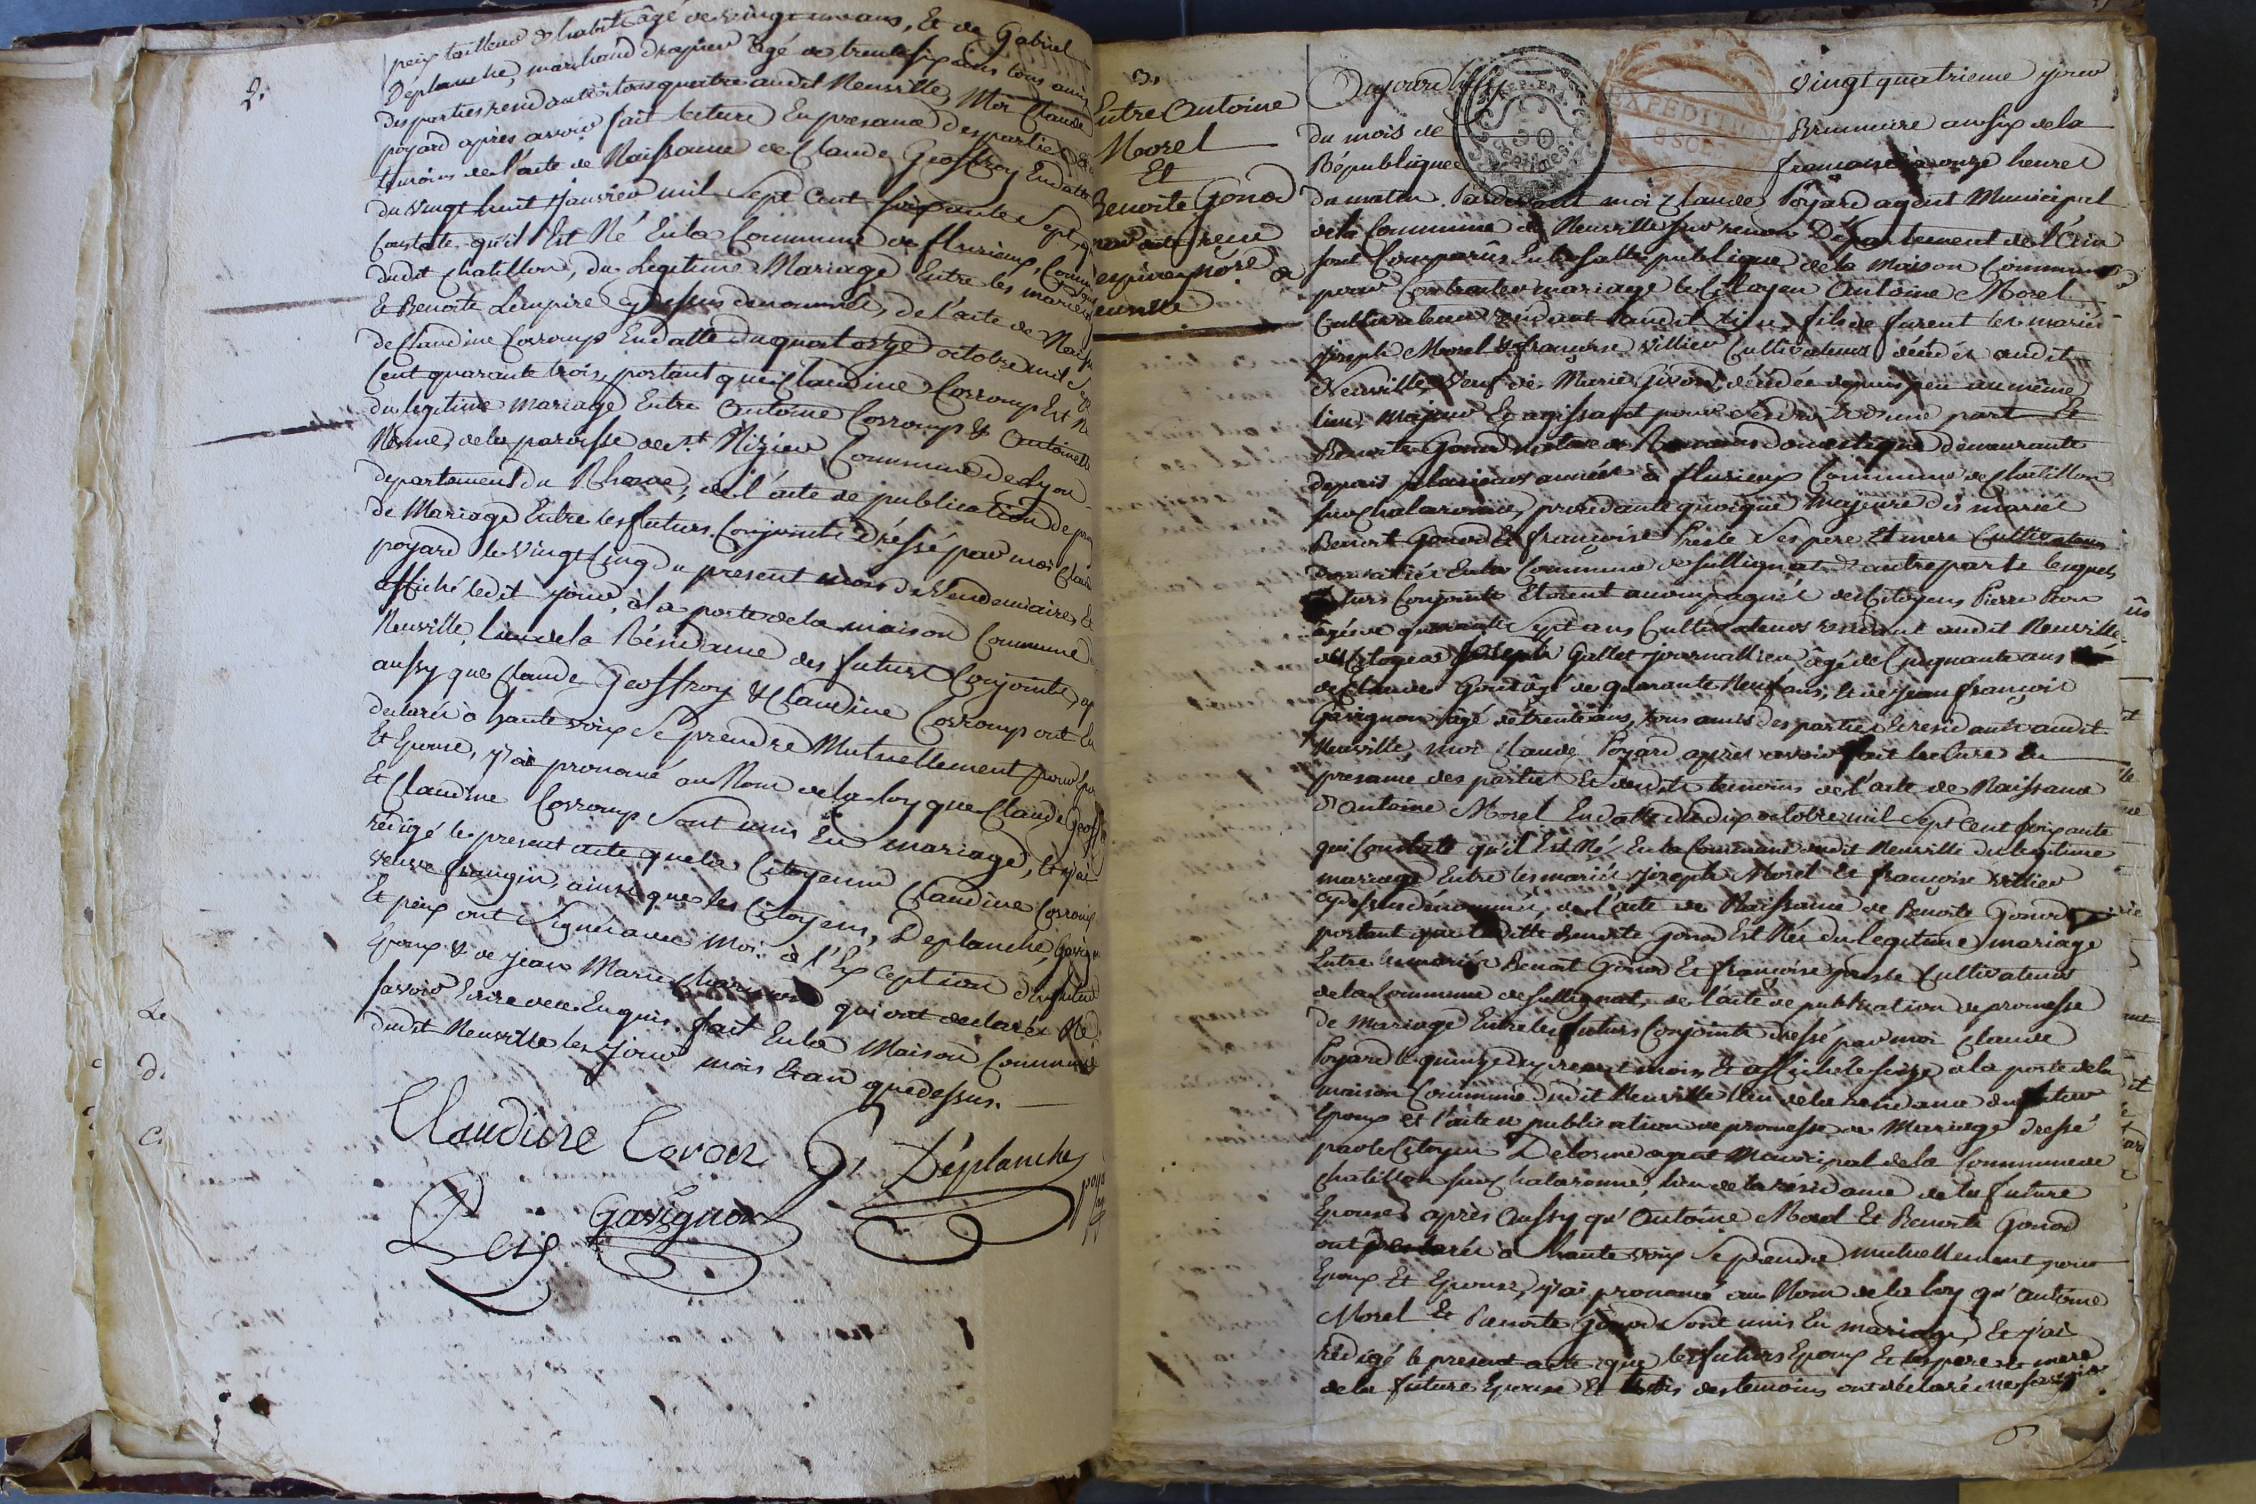 2.
peix tailleur d'habits âgé de vingt un ans, Et de Gabriel
Déplanche, marchand drapier âgé de trente six ans tous amis
des parties residants tous quatre audit Neuville, Moi Claude
poyard après avoir fait lecture En presance des parties Et
temoins de l'acte de Naissance de Claude Geoffroy En datte
du vingt huit janvier mil Sept Cent soixante Sept, qui
Constate qu'il Est Né En la Commune de flurieux, Commune
dudit chatillon, du Legitime Mariage Entre les mariés
Et Benoite Lempire cy dessus denommés, de l'acte de Nais
de Claudine Corromp En datte du quatorze octobre mil Sept
Cent quarante trois, portant que Claudine Corromp Est Né
du legitime mariage Entre Antoine Corromp & Antoinette
de la paroisse de St. Nizier Commune de Lyon
departement du Rhone, de l'acte de publication de pro
de Mariage Entre les futurs Conjoints dréssé par moi Claude
poyard le vingt Cinq du present mois de Vendemiaire, Et
affiché ledit jour, à la porte de la maison Commune
Neuville, lieu de la Résidance des futurs Conjoints, ap
aussy que Claude Geoffroy & Claudine Corromp ont
declaré à haute voix Se prendre Mutuellement pour Epo
Et Epouse, j'ai pronomé au Nom de la loy que Claude Geof
Et Claudine Corromp Sont unis En mariage, Et j'ai
rédigé le present acte que la Citoyenne Claudine Corromp
veuve frangin, ainsi que les Citoyens, Deplanche, Gavign
Et peix ont Signé avec Moi à l'Exception du futur
Epoux & de jean Marie qui ont declaré Ne
savoir Ecrire de ce Enquis. fait En la Maison Commune
dudit Neuville les jour mois Et an que dessus.
Claudine Coron G. Déplanche
Peix Gavignon
Le
d.
C.
3.
Entre Antoine
Morel
Et
Benoite Gonod
Aujourd'hui vingt quatrieme jour
du mois de Brumaire an six de la
République francaise à onze heures
du matin. Pardevant moi Claude Poyard agent Municipal
de la Commune de Neuville sur renom Département de l'Ain
sont Comparûs En la salle publique de la Maison Commune
pour Contracter mariage le Citoyen Antoine Morel
Cultivateur residant audit lieu fils de furent les mariés
joseph Morel & françoise Villier Cultivateurs décédés audit
Neuville, Veuf de Marie Givord, décédée depuis peu au même
lieu, Majeur Et agissant pour Ses droits d'une part Et
Benoite Gonod native de Romans domestique demeurante
depuis plusieurs années à flurieux Commune de Chatillon
sur Chalaronne, procédante quoique Majeure des mariés
Benoit Gonod Et françoise Preste Ses pere Et mere Cultivateurs
domiciliés En la Commune de Sulligniat d'autre part lesquels
futurs Conjoints Etoient accompagnés des Citoyens Pierre
âgé de quarante Sept ans Cultivateur residant audit Neuville
du Citoyen Joseph Gallet journallier, âgé de Cinquante ans
de Claude âgé de quarante Neuf ans, Et de Jean françois
Gavignon âgé de trente ans, tous amis des parties Et residants audit
Neuville, moi Claude Poyard après avoir fait lecture En
presance des parties Et desdits temoins de l'acte de Naissance
d'Antoine Morel En datte du dix octobre mil Sept Cent soixante
qui Constate qu'il Est Né En la Commune dudit Neuville du legitime
mariage Entre les mariés joseph Morel Et françoise Villier
cy dessus dénommés, de l'acte de Naissance de Benoite Gonod
portant que Laditte Benoite Gonod Est Née du legitime mariage
Entre les mariés Benoit Gonod Et françoise preste Cultivateurs
de la Commune de Sullignat, de l'acte de publication de promesse
de Mariage Entre les futurs Conjoints dressé par moi Claude
Poyard le quinze du present mois, Et affiché le seize a la porte de la
maison Commune dudit Neuville lieu de la residance du futur
Epoux et l'acte de publication de promesse de Mariage dressé
par le Citoyen Delorme agent Municipal de la Commune de
Chatillon sur Chalaronne, lieu de la residance de la future
Epouse, après aussy qu'Antoine Morel Et Benoite Gonod
ont declaré à haute voix Se prendre mutuellement pour
Epoux Et Epouse, j'ai pronomé au Nom de la loy qu'Antoine
Morel Et Benoite Gonod Sont unis En mariage, Et j'ai
rédigé le present acte que les futurs Epoux Et les pere & mere
de la future Epouse Et trois des temoins ont déclaré ne savoir